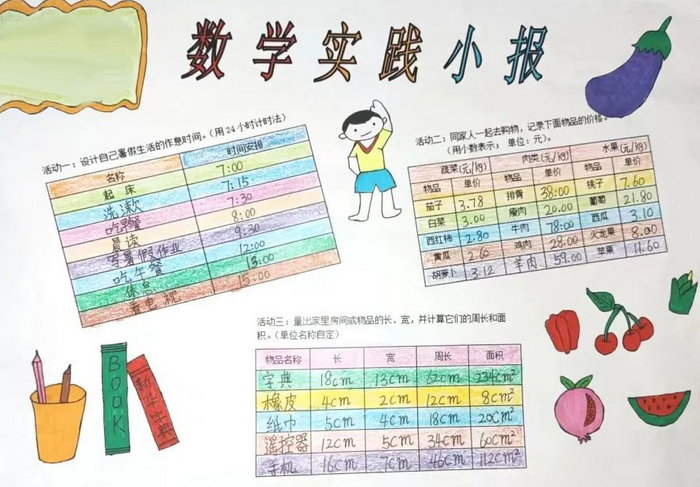 数学实践小报
活动一：设计自己暑假生活的作息时间。（用24小时计时法）
名称 时间安排
起床 7:00
洗漱 7:15
吃早餐 7:30
晨读 8:00
写暑假作业 9:30
吃午餐 12:00
休息 13:00
看电视 15:00
活动二：同家人一起去购物，记录下面物品的价格。
（用小数表示；单位：元）。
蔬菜(元/kg) 肉类(元/kg) 水果(元/kg)
物品 单价 物品 单价 物品 单价
茄子 3.78 排骨 38.00 桃子 7.60
白菜 3.00 瘦肉 20.00 葡萄 21.80
西红柿 2.80 牛肉 78.00 西瓜 3.10
黄瓜 2.60 鸡肉 28.00 火龙果 8.00
胡萝卜 3.12 羊肉 59.00 苹果 11.60
活动三：量出家里房间或物品的长、宽，并计算它们的周长和面
积。（单位名称自定）
物品名称 长 宽 周长 面积
字典 18cm 13cm 62cm 234cm²
橡皮 4cm 2cm 12cm 8cm²
纸巾 5cm 4cm 18cm 20cm²
遥控器 12cm 5cm 34cm 60cm²
手机 16cm 7cm 46cm 112cm²
BOOK
新华字典